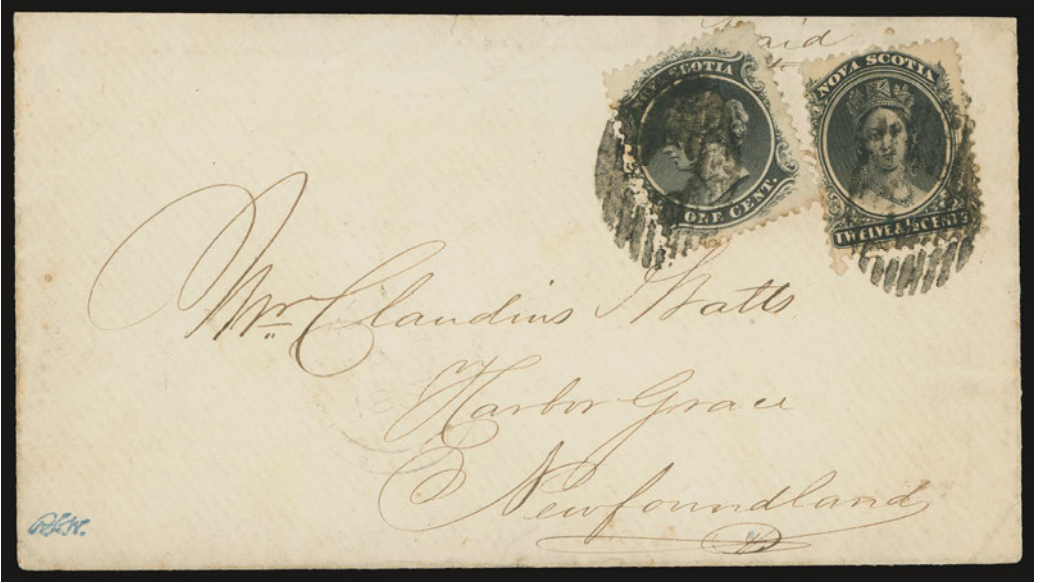 Paid
NOVA SCOTIA
ONE CENT.
NOVA SCOTIA
TWELVE & ½ CENTS
Mr. Claudius Watts
Harbor Grace
Newfoundland